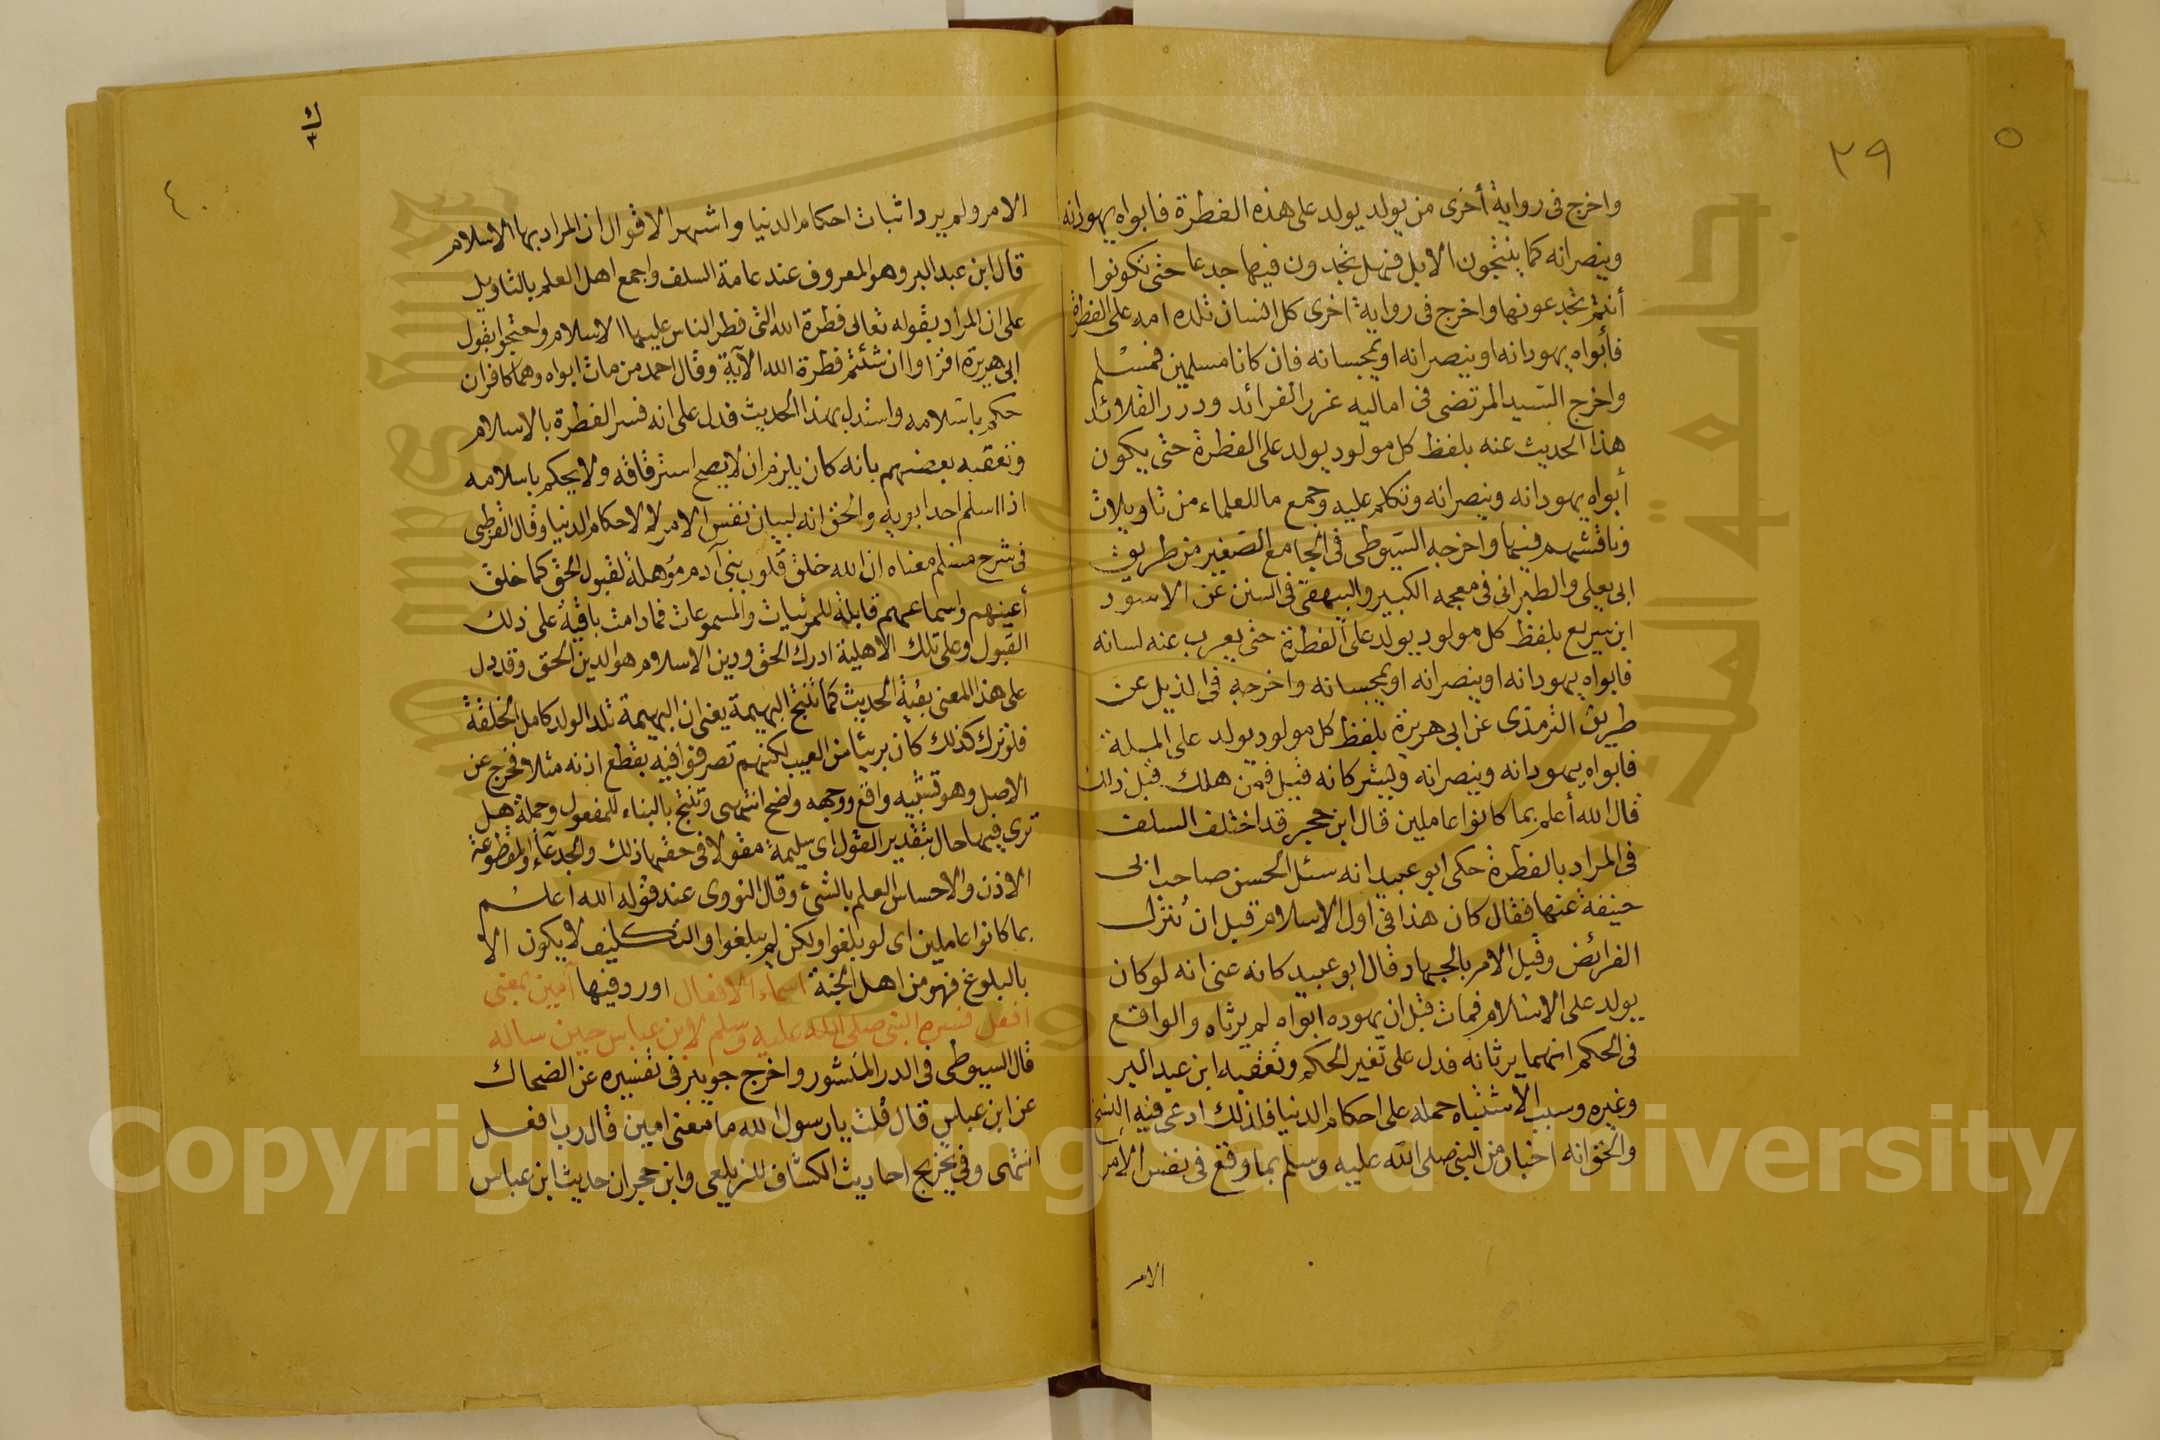 ٥
٣٩
واخرج في رواية أخرى من يولد يولد على هذه الفطرة فابواه يهودانه
وينصرانه كما ينتجون الابل فهل تجدون فيها جدعا حتى تكونوا
أنتم تجدعونها واخرج في رواية اخرى كل انسان تلده امه على الفطرة
فأبواه يهودانه او ينصرانه او يمجسانه فان كانا مسلمين فمسلم
واخرج السيد المرتضى في اماليه غرر الفرائد ودرر القلائد
هذا الحديث عنه بلفظ كل مولود يولد على الفطرة حتى يكون
أبواه يهودانه وينصرانه وتكلم عليه وجمع ما للعلماء من تاويلات
وناقشهم فيها واخرجه السيوطى في الجامع الصغير من طريق
ابى يعلى والطبرانى في معجمه الكبير والبيهقى في السنن عن الاسود
ابن سريع بلفظ كل مولود يولد على الفطرة حتى يعرب عنه لسانه
فابواه يهودانه او ينصرانه او يمجسانه واخرجه في الذيل عن
طريق الترمذى عن ابى هريرة بلفظ كل مولود يولد على الملة
فابواه يهودانه وينصرانه ويشركانه قيل فمن هلك قبل ذلك
قال الله أعلم بما كانوا عاملين قال ابن حجر قد اختلف السلف
في المراد بالفطرة حكى ابو عبيد انه سئل الحسن صاحب ابى
حنيفة عنها فقال كان هذا في اول الاسلام قبل ان تنزل
الفرائض وقيل الامر بالجهاد قال ابو عبيد كانه عنى انه لو كان
يولد على الاسلام فمات قبل ان يهوده ابواه لم يرثاه والواقع
في الحكم انهما يرثانه فدل على تغير الحكم وتعقبه ابن عبد البر
وغيره وسبب الاشتباه حمله على احكام الدنيا فلذلك ادعى فيه النسخ
والحق انه اخبار من النبى صلى الله عليه وسلم بما وقع في نفس الأمر
الامر
ك
٣
٤٠
الامر ولم يرد اثبات احكام الدنيا واشهر الاقوال ان المراد بها الاسلام
قال ابن عبد البر وهو المعروف عند عامة السلف واجمع اهل العلم بالتاويل
على ان المراد بقوله تعالى فطرة الله التى فطر الناس عليها الاسلام واحتجوا بقول
ابى هريرة اقراوا ان شئتم فطرة الله الآية وقال احمد من مات ابواه وهما كافران
حكم باسلامه واستدل بهذا الحديث فدل على انه فسر الفطرة بالاسلام
وتعقبه بعضهم بانه كان يلزم ان لا يصح استرقاقه ولا يحكم باسلامه
اذا اسلم احد ابويه والحق انه لبيان نفس الامر لا لاحكام الدنيا وقال القرطبى
في شرح مسلم معناه ان الله خلق قلوب بنى آدم مؤهلة لقبول الحق كما خلق
أعينهم واسماعهم قابلة للمرئيات والمسموعات فما دامت باقية على ذلك
القبول وعلى تلك الاهلية ادرك الحق ودين الاسلام هو الدين الحق وقد دل
على هذا المعنى بقية الحديث كما تنتج البهيمة يعنى ان البهيمة تلد الولد كامل الخلقة
فلو ترك كذلك كان بريئا من العيب لكنهم تصرفوا فيه بقطع اذنه مثلا فخرج عن
الاصل وهو تشبيه واقع ووجهه واضح انتهى وتنتج بالبناء للمفعول وجملة هل
ترى فيها حال بتقدير القول اى سليمة مقولا في حقها ذلك والجدعآء المقطوعة
الاذن والاحساس العلم بالشئ وقال النووى عند قوله الله اعلم
بما كانوا عاملين اى لو بلغوا ولكن لم يبلغوا والتكليف لا يكون الا
بالبلوغ فهو من اهل الجنة اسماء الافعال اورد فيها آمين بمعنى
افعل فسره النبى صلى الله عليه وسلم لابن عباس حين ساله
قال السيوطى في الدر المنثور واخرج جويبر في تفسيره عن الضحاك
عن ابن عباس قال قلت يا رسول الله ما معنى امين قال رب افعل
انتهى وفى تخريج احاديث الكشاف للزيلعى وابن حجر ان حديث ابن عباس
جامعة الملك سعود
Copyright © King Saud University